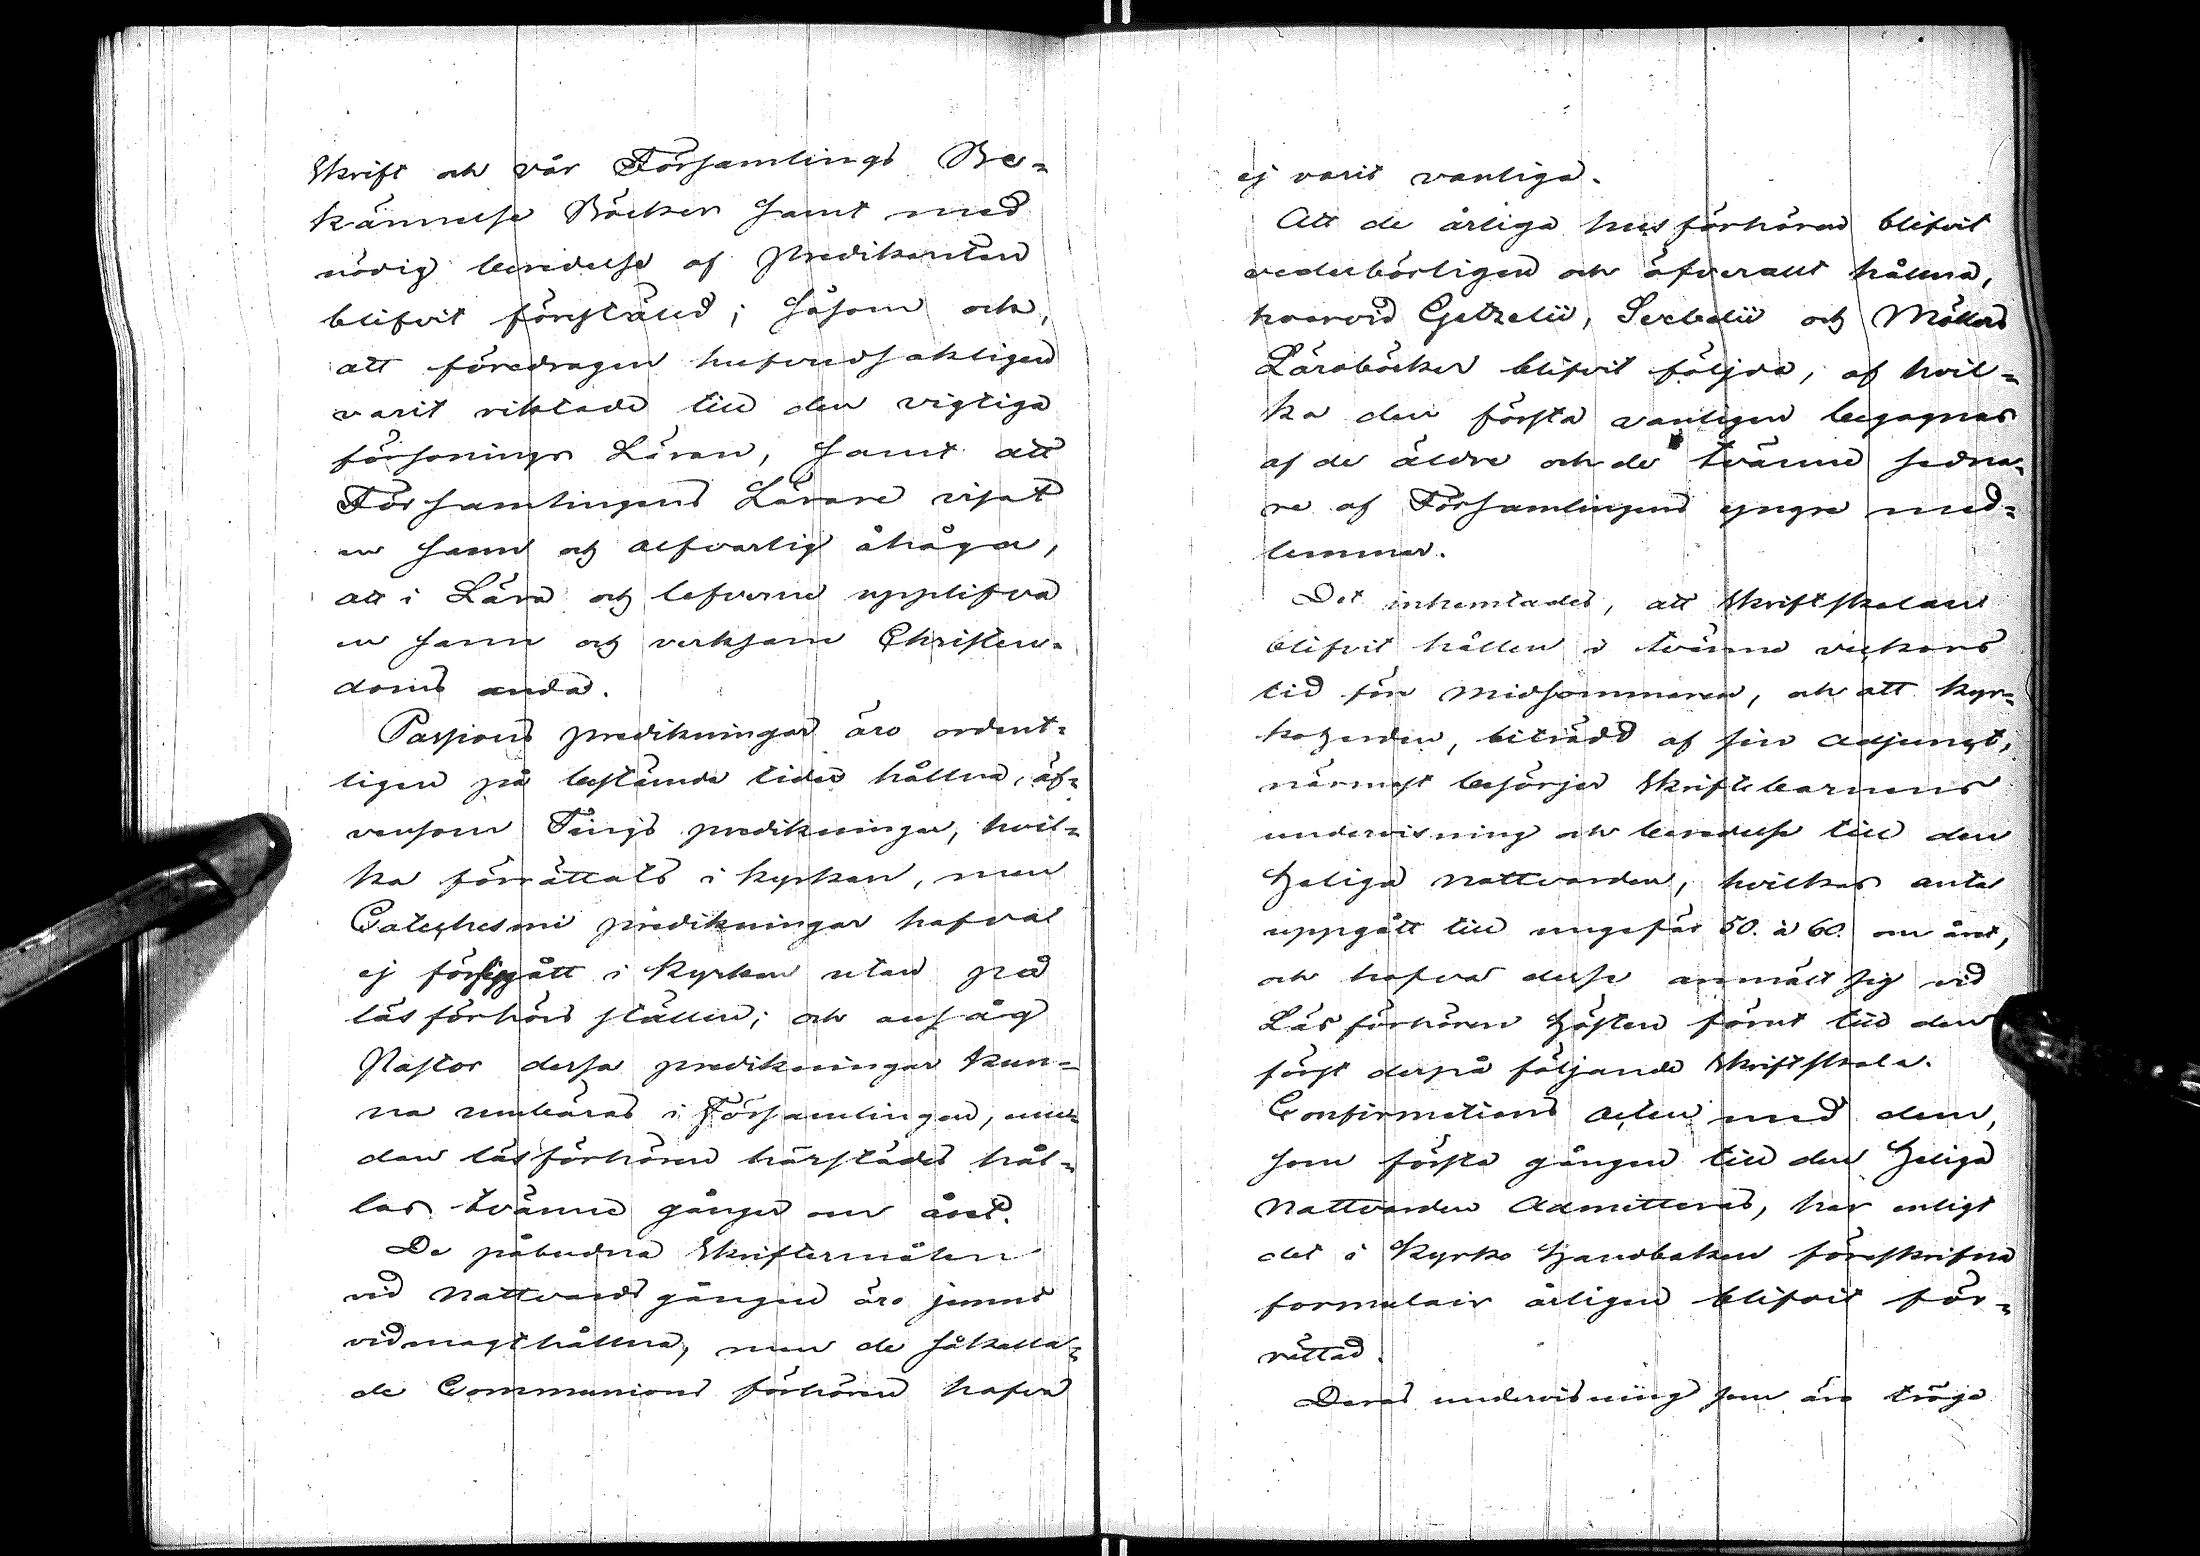 Skrift och vår Församlings Be-
kännelse Böcker samt med
nödig beredelse af Predikanten
blifvit föreståld; såsom och,
att föredragen hufvudsakligen
varit riktade till den vigtiga
försonings Läran, samt att
Församlingens Lärare visat
en sann och alfvarlig åhåga,
att i Lära och lefverne upplifva
en sann och verksam Christen-
doms anda.
Passions predikningar äro ordent-
ligen på bestämda tider hållna, äf-
vensom Tings predikningar, hvil-
ka förrättats i kyrkan, men
Catechesmi predikningar hafva
ej föregått i Kyrkan utan på
läsförhörs ställen; och ansåg
Pastor dessa predikningar kun-
na umbäras i Församlingen, me-
dan läsförhören härstädes hål-
las tvänne gånger om året.
De påbudna Skriftermålen
vid Nattvards gången äro jemnt
vidmagthållna, men de såkalla-
de Communions förhören hafva
ej varit vanliga.
Att de årliga husförhören blifvit
vederbörligen och öfverallt hållna,
hvarvid Getzelii, Svebelii och Möllers
Läroböcker blifvit följda, af hvil-
ka den första vanligen begagnas
af de äldre och de tvänne sedna-
re af Församlingens yngre med-
lemmar.
Det inhemtades, att Skriftskolan
blifvit hållen i tvänne veckors
tid för Midsommaren, och att kyr-
koherden, biträdd af sin Adjunct,
närmast besörjer Skriftebarnens
undervisning och beredelse till den
Heliga Nattvarden, hvilkas antal
uppgått till ungefär 50. à 60. om året,
och hafva desse anmält sig vid
Läsförhören Hösten förut till den
först derpå följande Skriftskola.
Confirmations Acten med dem,
som första gången till den Heliga
Nattvarden Admitteras, har enligt
det i Kyrko Handboken föreskrifna
formulair årligen blifvit för-
rättad.
Deras undervisning som äro tröga